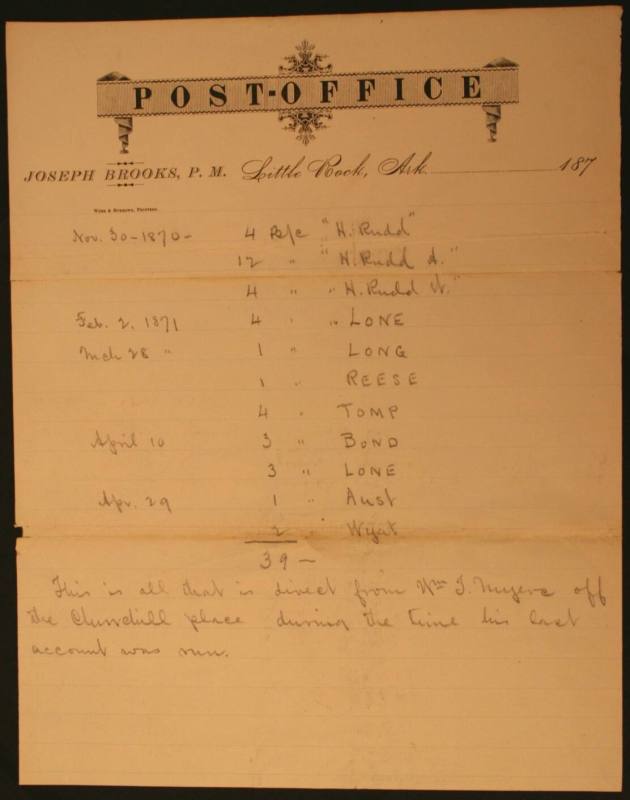 POST-OFFICE
JOSEPH BROOKS, P. M. Little Rock, Ark. 187
Nov. 30-1870- 4 B/c "H. Rudd"
12 " "H. Rudd A."
4 " "H. Rudd
Feb. 2, 1871 4 " " LONE
Mch 28 " 1 " LONG
1 " REESE
4 " TOMP
April 10 3 " BOND
3 " LONE
Apr. 29 1 " Aust
2 " Wyat
39 —
This is all that is direct from Wm J. Myers off
the Churchill place during the time his last
account was run.